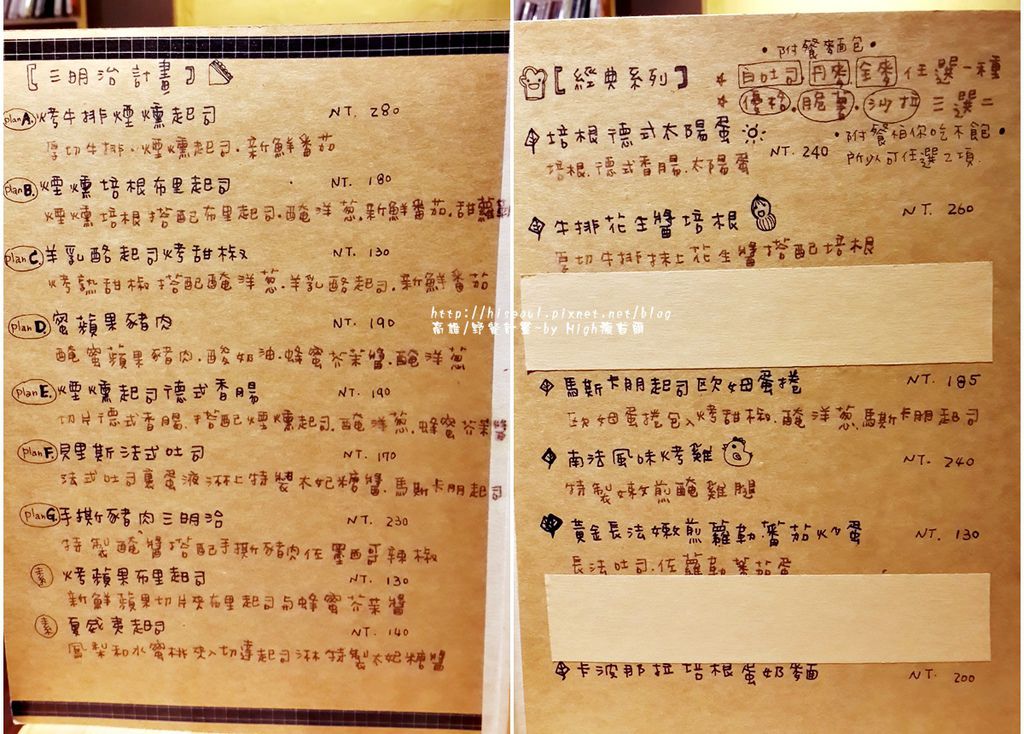 [三明治計畫]
Plan A. 烤牛排煙燻起司 NT. 280
厚切牛排.煙燻起司.新鮮番茄
Plan B. 煙燻培根布里起司 NT. 180
煙燻培根搭配布里起司.醃洋蔥.新鮮番茄.甜蘿
Plan C. 羊乳酪起司烤甜椒 NT. 130
烤熟甜椒搭配醃洋蔥.羊乳酪起司.新鮮番茄
Plan D. 蜜蘋果豬肉 NT. 190
醃蜜蘋果豬肉.酸奶油.蜂蜜芥茉醬.醃洋蔥
Plan E. 煙燻起司德式香腸 NT. 190
切片德式香腸.搭配煙燻起司.醃洋蔥.蜂蜜芥茉
Plan F. 貝里斯法式吐司 NT. 170
法式吐司裹蛋液淋上特製太妃糖醬.馬斯卡朋起司
Plan G. 手撕豬肉三明治 NT. 230
特製醃醬搭配手撕豬肉佐墨西哥辣椒
素 烤蘋果布里起司 NT. 130
新鮮蘋果切片夾布里起司與蜂蜜芥茉醬
素 夏威夷起司 NT. 140
鳳梨和水蜜桃夾入切達起司淋特製太妃糖醬
•附餐麵包•
[經典系列]
白吐司.丹麥.全麥任選一種
優格.脆薯.沙拉 三選二
•附餐怕你吃不飽•
所以可任選2項
培根德式太陽蛋 NT. 240
培根.德式香腸.太陽蛋
牛排花生醬培根 NT. 260
厚切牛排抹上花生醬搭配培根
http://hiseoul.pixnet.net/blog
高雄/野餐計畫-by High
馬斯卡朋起司歐姆蛋捲 NT. 185
歐姆蛋捲包入烤甜椒.醃洋蔥.馬斯卡朋起司
南法風味烤雞 NT. 240
特製嫩煎醃雞腿
黃金長法嫩煎蘿勒.蕃茄炒蛋 NT. 130
長法吐司.佐蘿勒蕃茄蛋
卡波那拉培根蛋奶麵 NT. 200